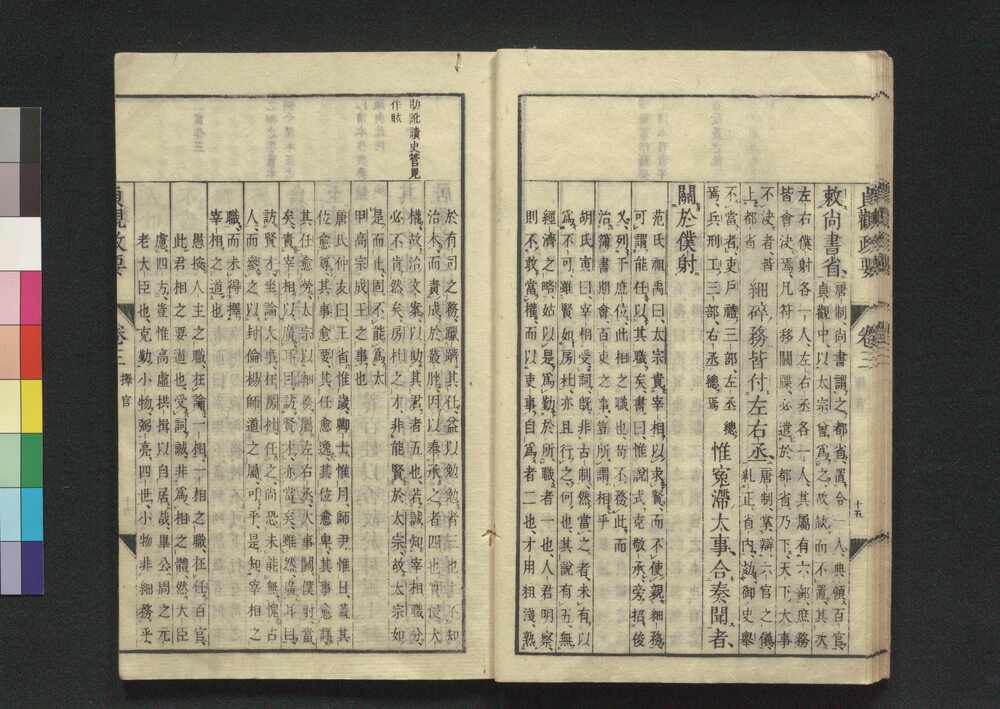 貞觀政要 卷三 十五
敕尚書省、唐制尚書謂之都省、置令一人典領百官、貞觀中、以太宗嘗爲之改缺、而不置、其次
左右僕射各一人、左右丞各一人、其屬有六部、庶務皆會決焉、凡符移關牒、必遣於都省乃下、天下大事
不決者、皆上都省、細碎務皆付左右丞、唐制、掌辯六官之儀、糺正省內、劾御史舉
不當者、吏戶禮三部、左丞總焉、兵刑工三部、右丞總焉、惟寃滯大事合奏聞者、
關於僕射
范氏祖禹曰、太宗責宰相、以求賢、而不使親細務、
可謂能任以其職矣、書曰、惟說式克敬承、旁招俊
乂、列于庶位、此相之職也、苟不務此、而
治簿書期會百吏之事、豈所謂相乎
胡氏寅曰、宰相受詞訟、非古制、然當之者、未有以
爲不可、雖賢如房杜、亦且行之、何也、其說有五、無
經濟之略、姑以是爲勤於所職者一也、人君明察、
則不敢當權、而以吏事自爲者二也、才用粗淺、熟
於有司之務、躐躋其任、益以勉勉者三也、不知
治本、而責成於叢脞、因以奉承之者四也、
構、故洽文案以助其君者五也、若誠知宰相職分、
必不肯然矣、房杜之才、非能賢於太宗、故太宗如
是而止、固不能爲太
甲高宗成王之事也
唐氏仲友曰、王省惟歲、卿士惟月、師尹惟日、蓋其
位愈尊、其事愈要、其任愈逸、其位愈卑、其事愈詳、
其任愈勞、太宗以細務屬左右丞、大事關僕射、當
矣、責宰相以廣耳目、訪賢才、亦當矣、雖然廣耳目、
訪賢才、坐論大事、在房杜任之、尚恐未能無愧古
人、而參之以封倫楊師道之屬、可乎、是知宰相之
職、而未得擇
宰相之道也
愚按、人主之職、在論一相、一相之職、在任百官、
此君相之要道也、受詞誠非爲相之體、然大臣
慮四方、豈惟高虛拱揖以自居哉、畢公周之元
老大臣也、克勤小物、弼亮四世、小物非細務乎
貞觀政要 卷三 擇官
訟讀史管見
作